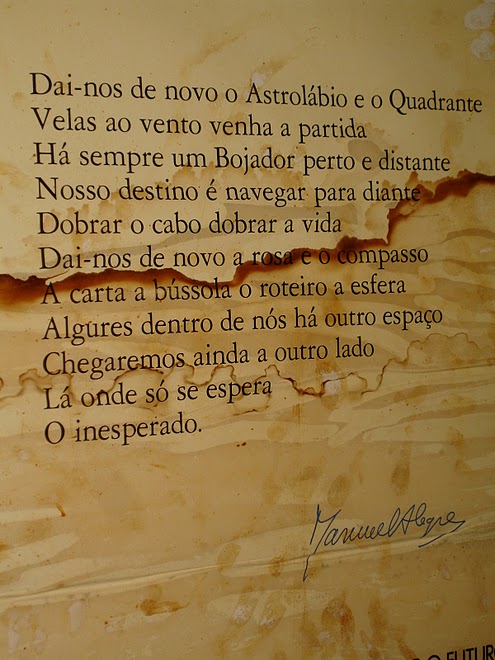 Dai-nos de novo o Astrolábio e o Quadrante
Velas ao vento venha a partida
Há sempre um Bojador perto e distante
Nosso destino é navegar para diante
Dobrar o cabo dobrar a vida
Dai-nos de novo a rosa e o compasso
A carta a bússola o roteiro a esfera
Algures dentro de nós há outro espaço
Chegaremos ainda a outro lado
Lá onde só se espera
O inesperado.
Manuel Alegre
O FUTUR